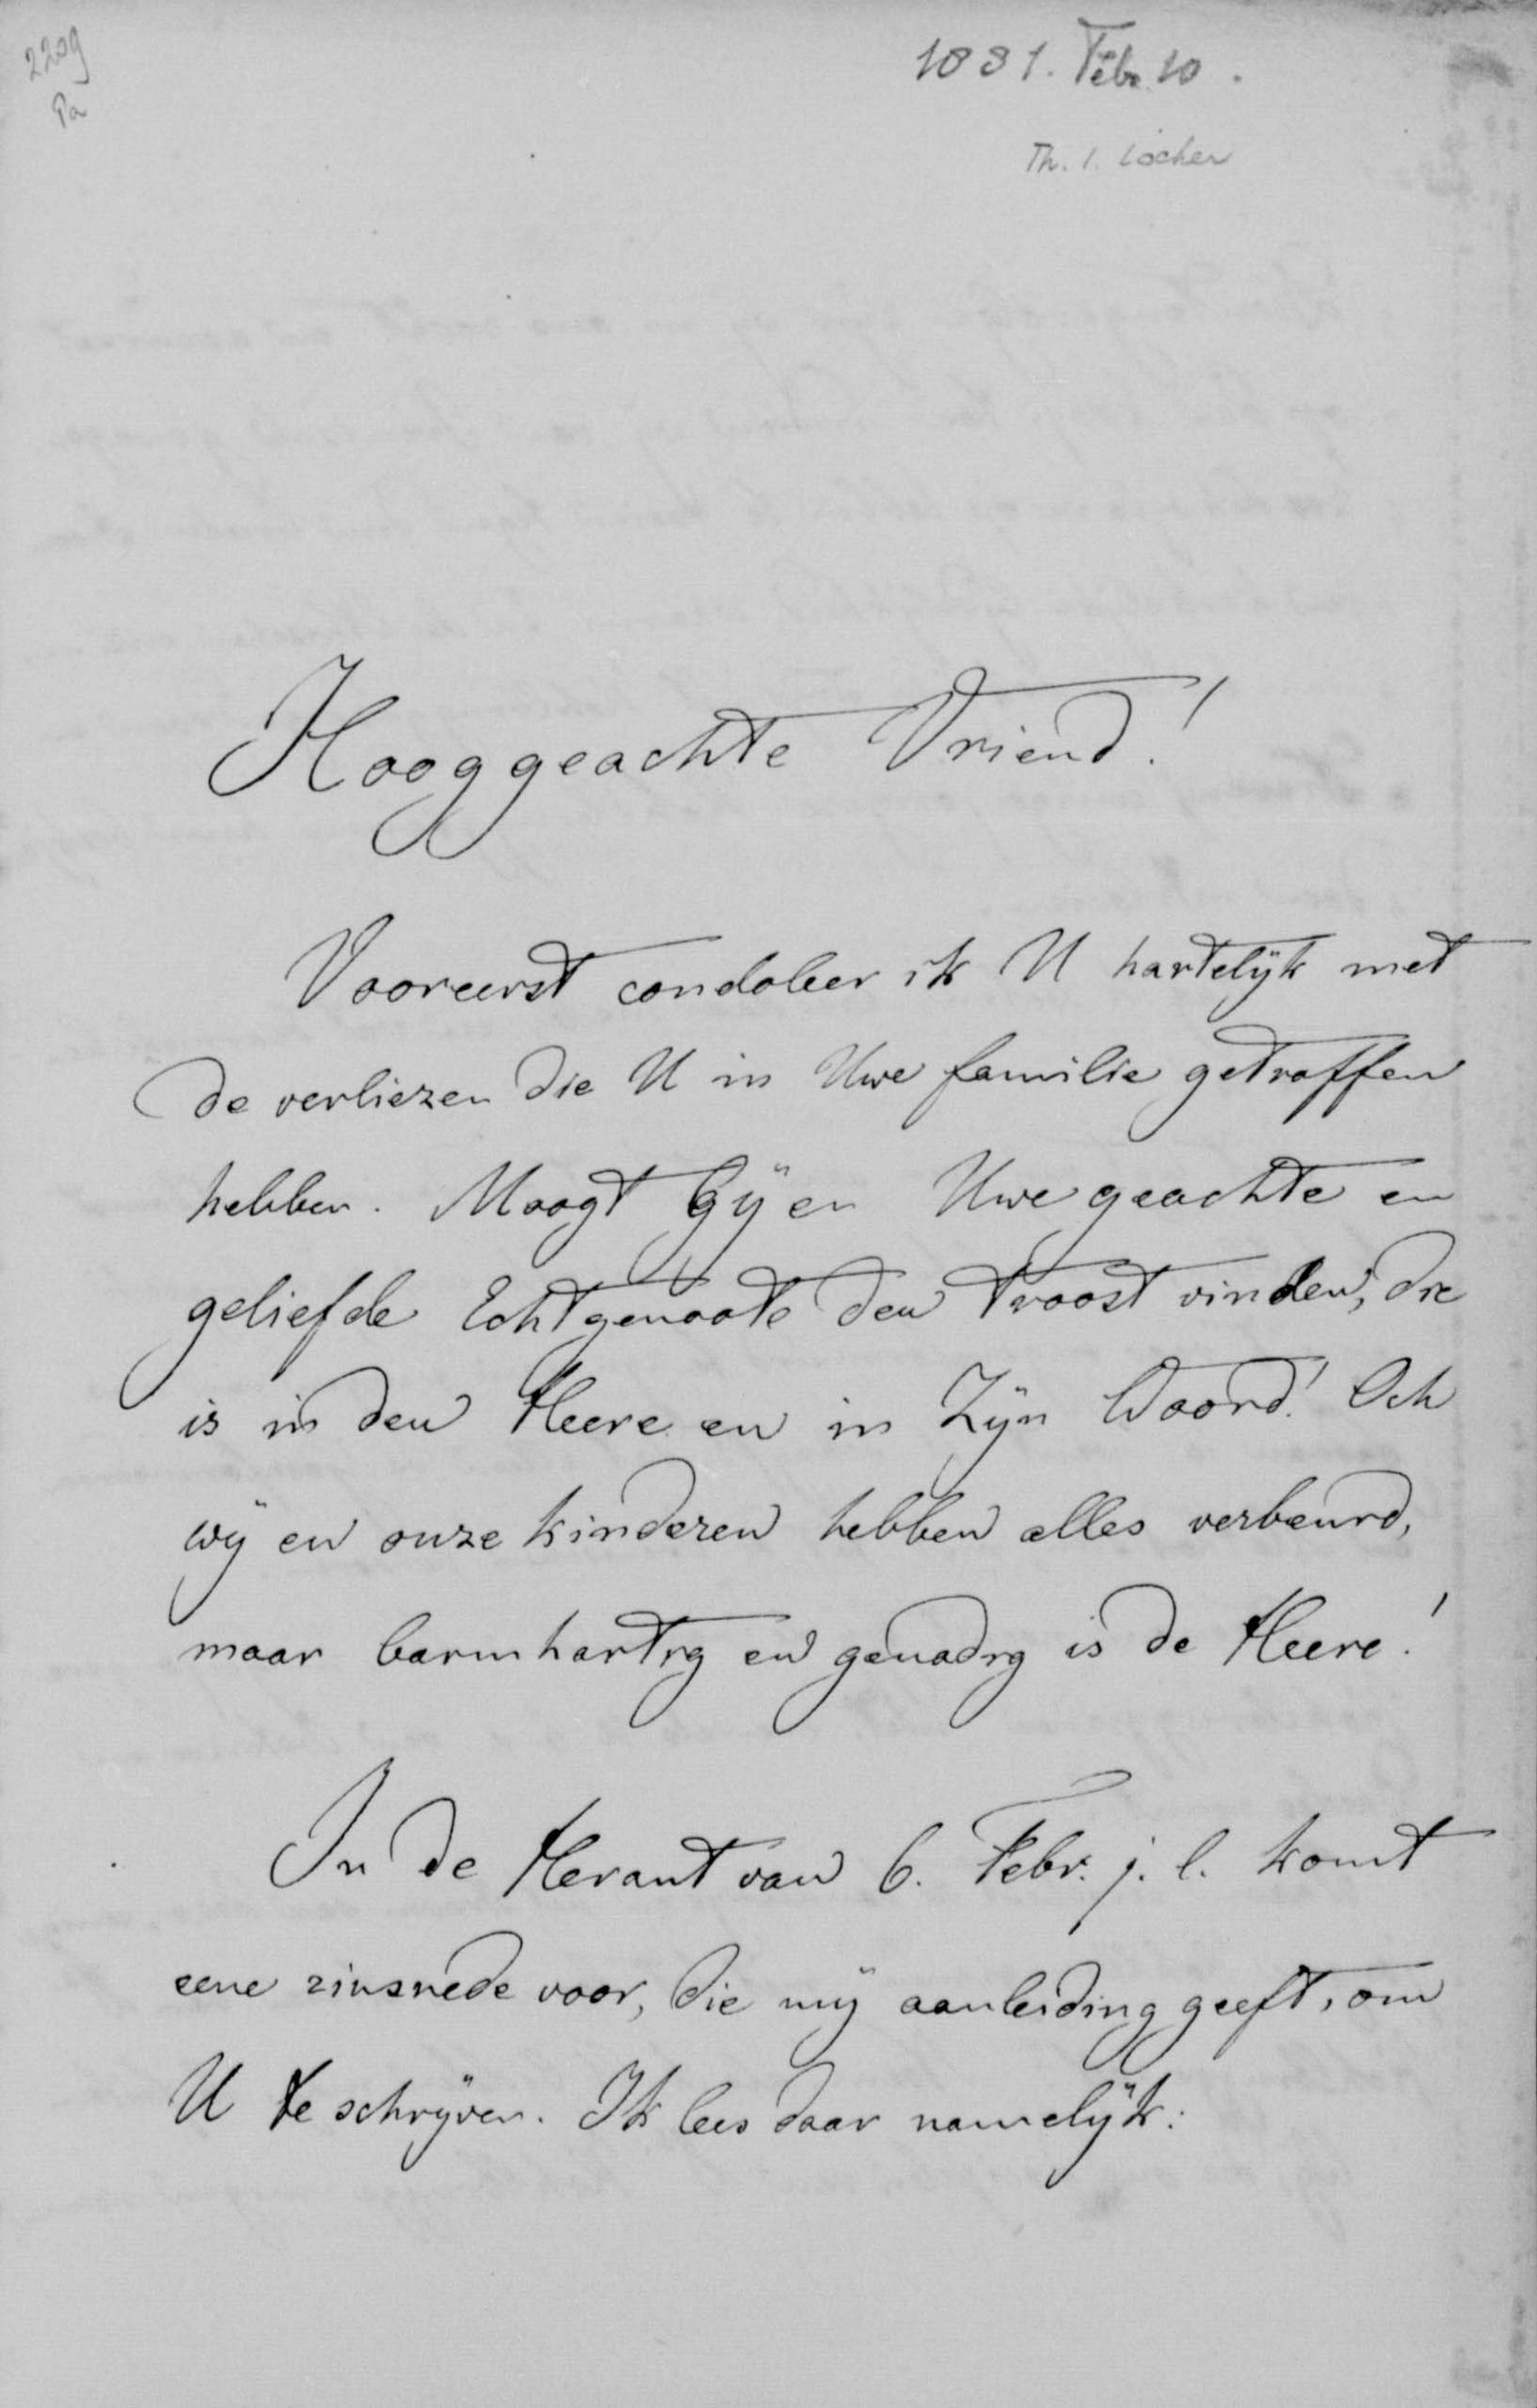 2209
Pa
1881. Febr. 10.
Th. l. Locher
Hooggeachte Vriend!
Vooreerst condoleer ik U hartelijk met
de verliezen die U in Uwe familie getroffen
hebben. Moogt Gij en Uwe geachte en
geliefde Echtgenoote den troost vinden, die
is in den Heere en in Zijn Woord! Och
wij en onze kinderen hebben alles verbeurd,
maar barmhartig en genadig is de Heere!
In de Heraut van 6. Febr. j. l. komt
eene zinsnede voor, die mij aanleiding geeft, om
U te schrijven. Ik lees daar namelijk: